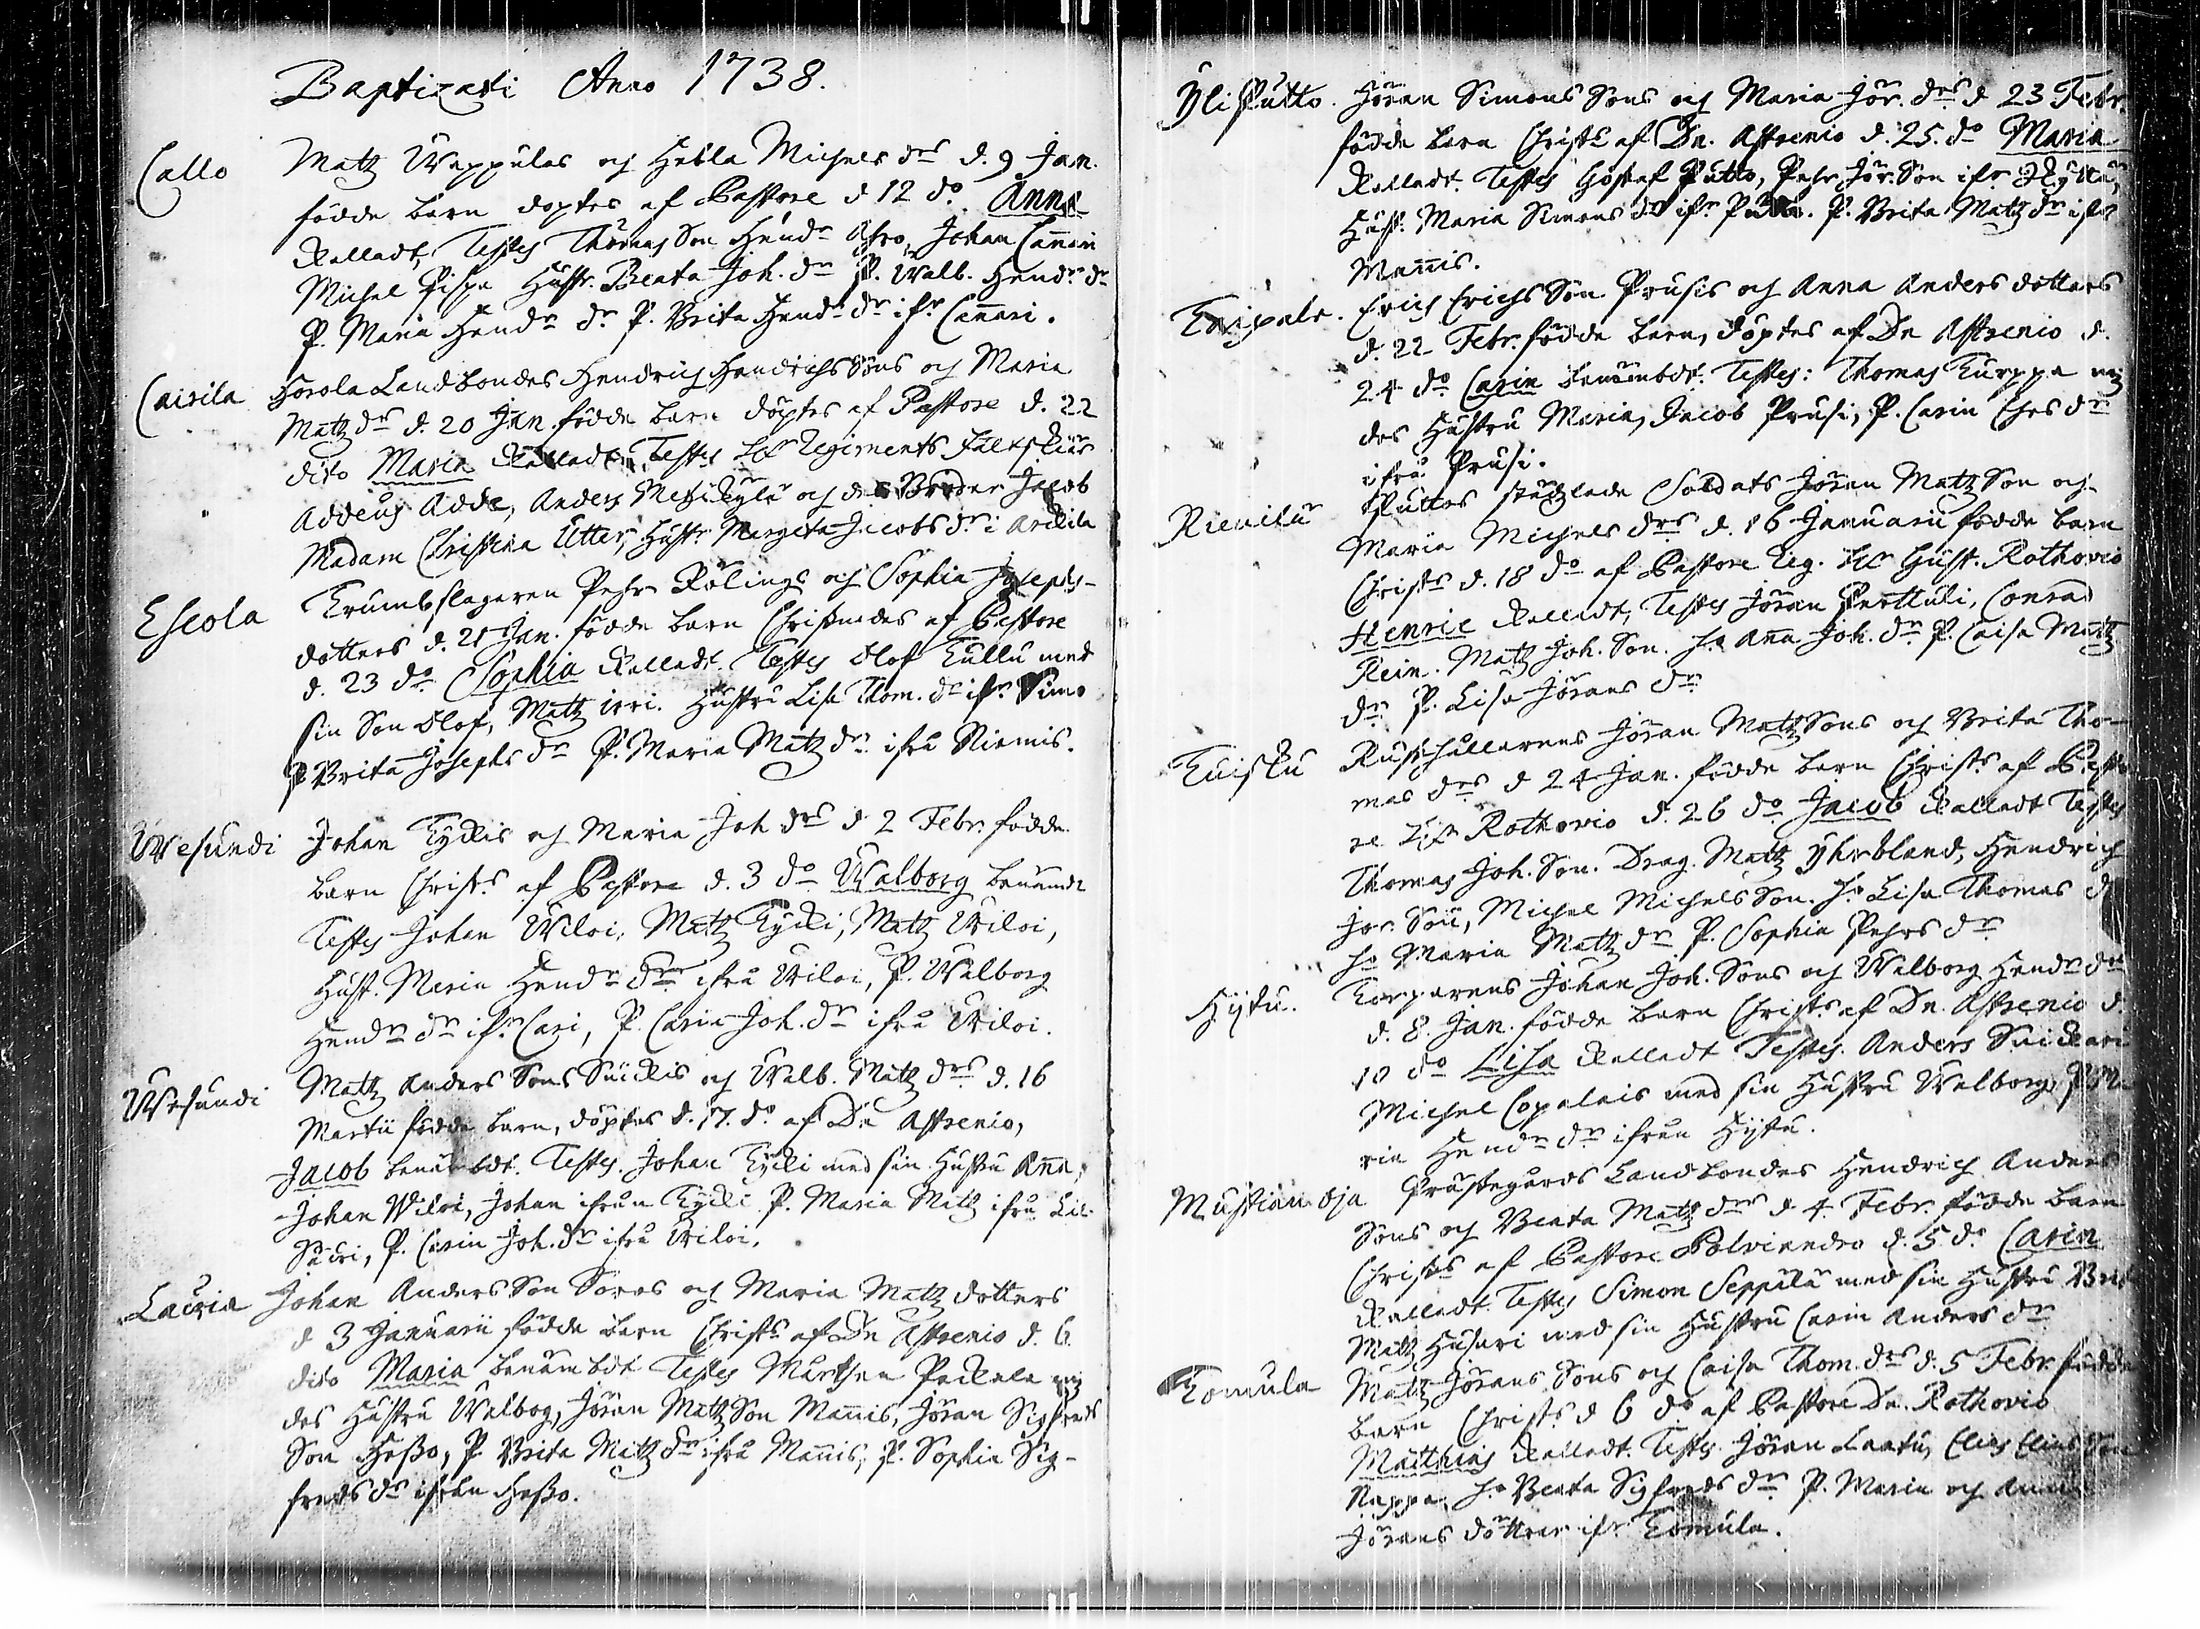 Baptizati Anno 1738.
Callo Matz Wappulas och Hebla Michels drs d. 9 Jan.
födde barn doptes af Pastore d 12 do. Anna
kalladt, Testes Thomas Son Hendr Johan Cannari
Michel Pispa Hustr. Beata Joh. dr P. Walb. Hendr. dr
P. Maria Hendr dr P. Brita Hendr dr ifr Cannari.
Caisila Horola Landbondes Hendrich Hendrichs Sons och Maria
Matz drs d. 20 Jan. födde barn döptes af Pastore d. 22
dito Maria kalladt, Testes Regiments fältskiär
Addeus Adde, Anders och des Broder Jacob
Madam Christina Utter, Hustr Margeta Jacobs dr i Arkila
Eseola Trumbslagaren Pehr Rölings och Sophia Josephs-
dotters d. 21 Jan. födde barn Christnades af Pastore
d. 23 do Sophia kalladt. Testes Olof Tullu med
sin Son Olof, Matz irri. Hustru Lisa Thom. dr ifr Simo
P Brita Josephs dr P. Maria Matz dr ifrå Niemis.
Wesundi Johan Tykkis och Maria Joh drs d 2 Febr. födde
barn Christs af Pastore d. 3 do Walborg benämdt
Testes Johan Wiloi, Matz Tykki, Matz Wiloi,
Hust. Maria Hendr dr ifrå Wiloi, P. Walborg
Hendr dr ifr Cari, P. Carin Joh. dr ifrå Wiloi.
Wesundi Matz Anders Sons Suikkis och Walb. Matz drs d. 16
Martii födde barn, döptes d. 17. do af Dn Astrenio,
Jacob benämbdt. Testes. Johan Tykki med sin Hustru Anna,
Johan Wiloi, Johan ifrån Tykki P. Maria Matz ifrå Lill
P. Carin Joh. dr ifrå Wiloi.
Lauria Johan Anders Son Soros och Maria Matz dotters
d 3 Januarii födde barn Christs af Dn Astrenio d. 6
dito Maria benämbdt Testes Mårthen Packala med
des Hustru Walborg, Jöran Matz Son Mannis, Jöran Sigfreds
Son Hesso, P. Brita Matz dr ifrå Mannis, P. Sophia Sig-
freds dr ifrån Hesso.
Yli Putto. Jöran Simons Sons och Maria Jör. drs d 23 Febr.
födde barn Christs af Dn. Astrenio d. 25. do Maria
kalladt. Testes Gostaf Putto, Pehr Jör. Son ifr
Hust. Maria Simons dr ifr P. Brita Matz dr ifr
Mannis.
Taipale. Erich Erichs Son Prusis och Anna Anders dotters
d. 22 Febr. födde barn, döptes af Dn Astrenio d.
24 do Carin benämbdt. Testes: Thomas Turppa med
des Hustru Maria, Jacob Prusi, P. Carin dr
ifrå Prusi.
Rienilä Puttos städslade Soldats Jöran Matz Son och
Maria Michels drs d. 16 Januarii födde barn
Christs d. 18 do af Pastore Reg. Hr Gust. Rothovio
Henric kalladt, Testes Jöran Perttuli, Conrad
Rein. Matz Joh. Son. Ho Anna Joh. dr P. Caisa Matz
dr P. Lisa Jörans dr
Tuisku Rusthållarens Jöran Matz Sons och Brita Tho-
mas drs d 24 Jan. födde barn Christs af Pasto
re Rothovio d. 26 do Jacob kalladt Testes
Thomas Joh. Son. Drag. Matz Yhrbland, Hendrich
Jör. Son, Michel Michels Son. Ho Lisa Thomas d
Ho Maria Matz dr P. Sophia Pehrs dr
Hyttu. Torparens Johan Joh. Sons och Walborg Hendr drs
d. 8 Jan. födde barn Christs af Dn. Astrenio d.
10 do Lisa kalladt Testes. Anders Suikkari
Michel Copalais med sin Hustru Walborg, P Ma
ria Hendr dr ifrån Hyttu.
Mustianoja Prästegårds Landbondes Hendrich Anders
Sons och Beata Matz drs d 4. Febr. födde barn
Christs af Pastore Polviandro d. 5 do Carin
kalladt. Testes Simon Seppälä med sin Hustru Brit
Matz Husari med sin Hustru Carin Anders dr
Tomula Matz Jörans Sons och Caisa Thom. drs d. 5 Febr. födde
barn Christs d 6 do af Pastore Dn. Rothovio
Matthias kalladt. Testes Jöran Laatu, Elias Elias Son
Nappa, Ho Beata Sigfreds dr P. Maria och Anna
Jörans döttrar ifr. Tomula.